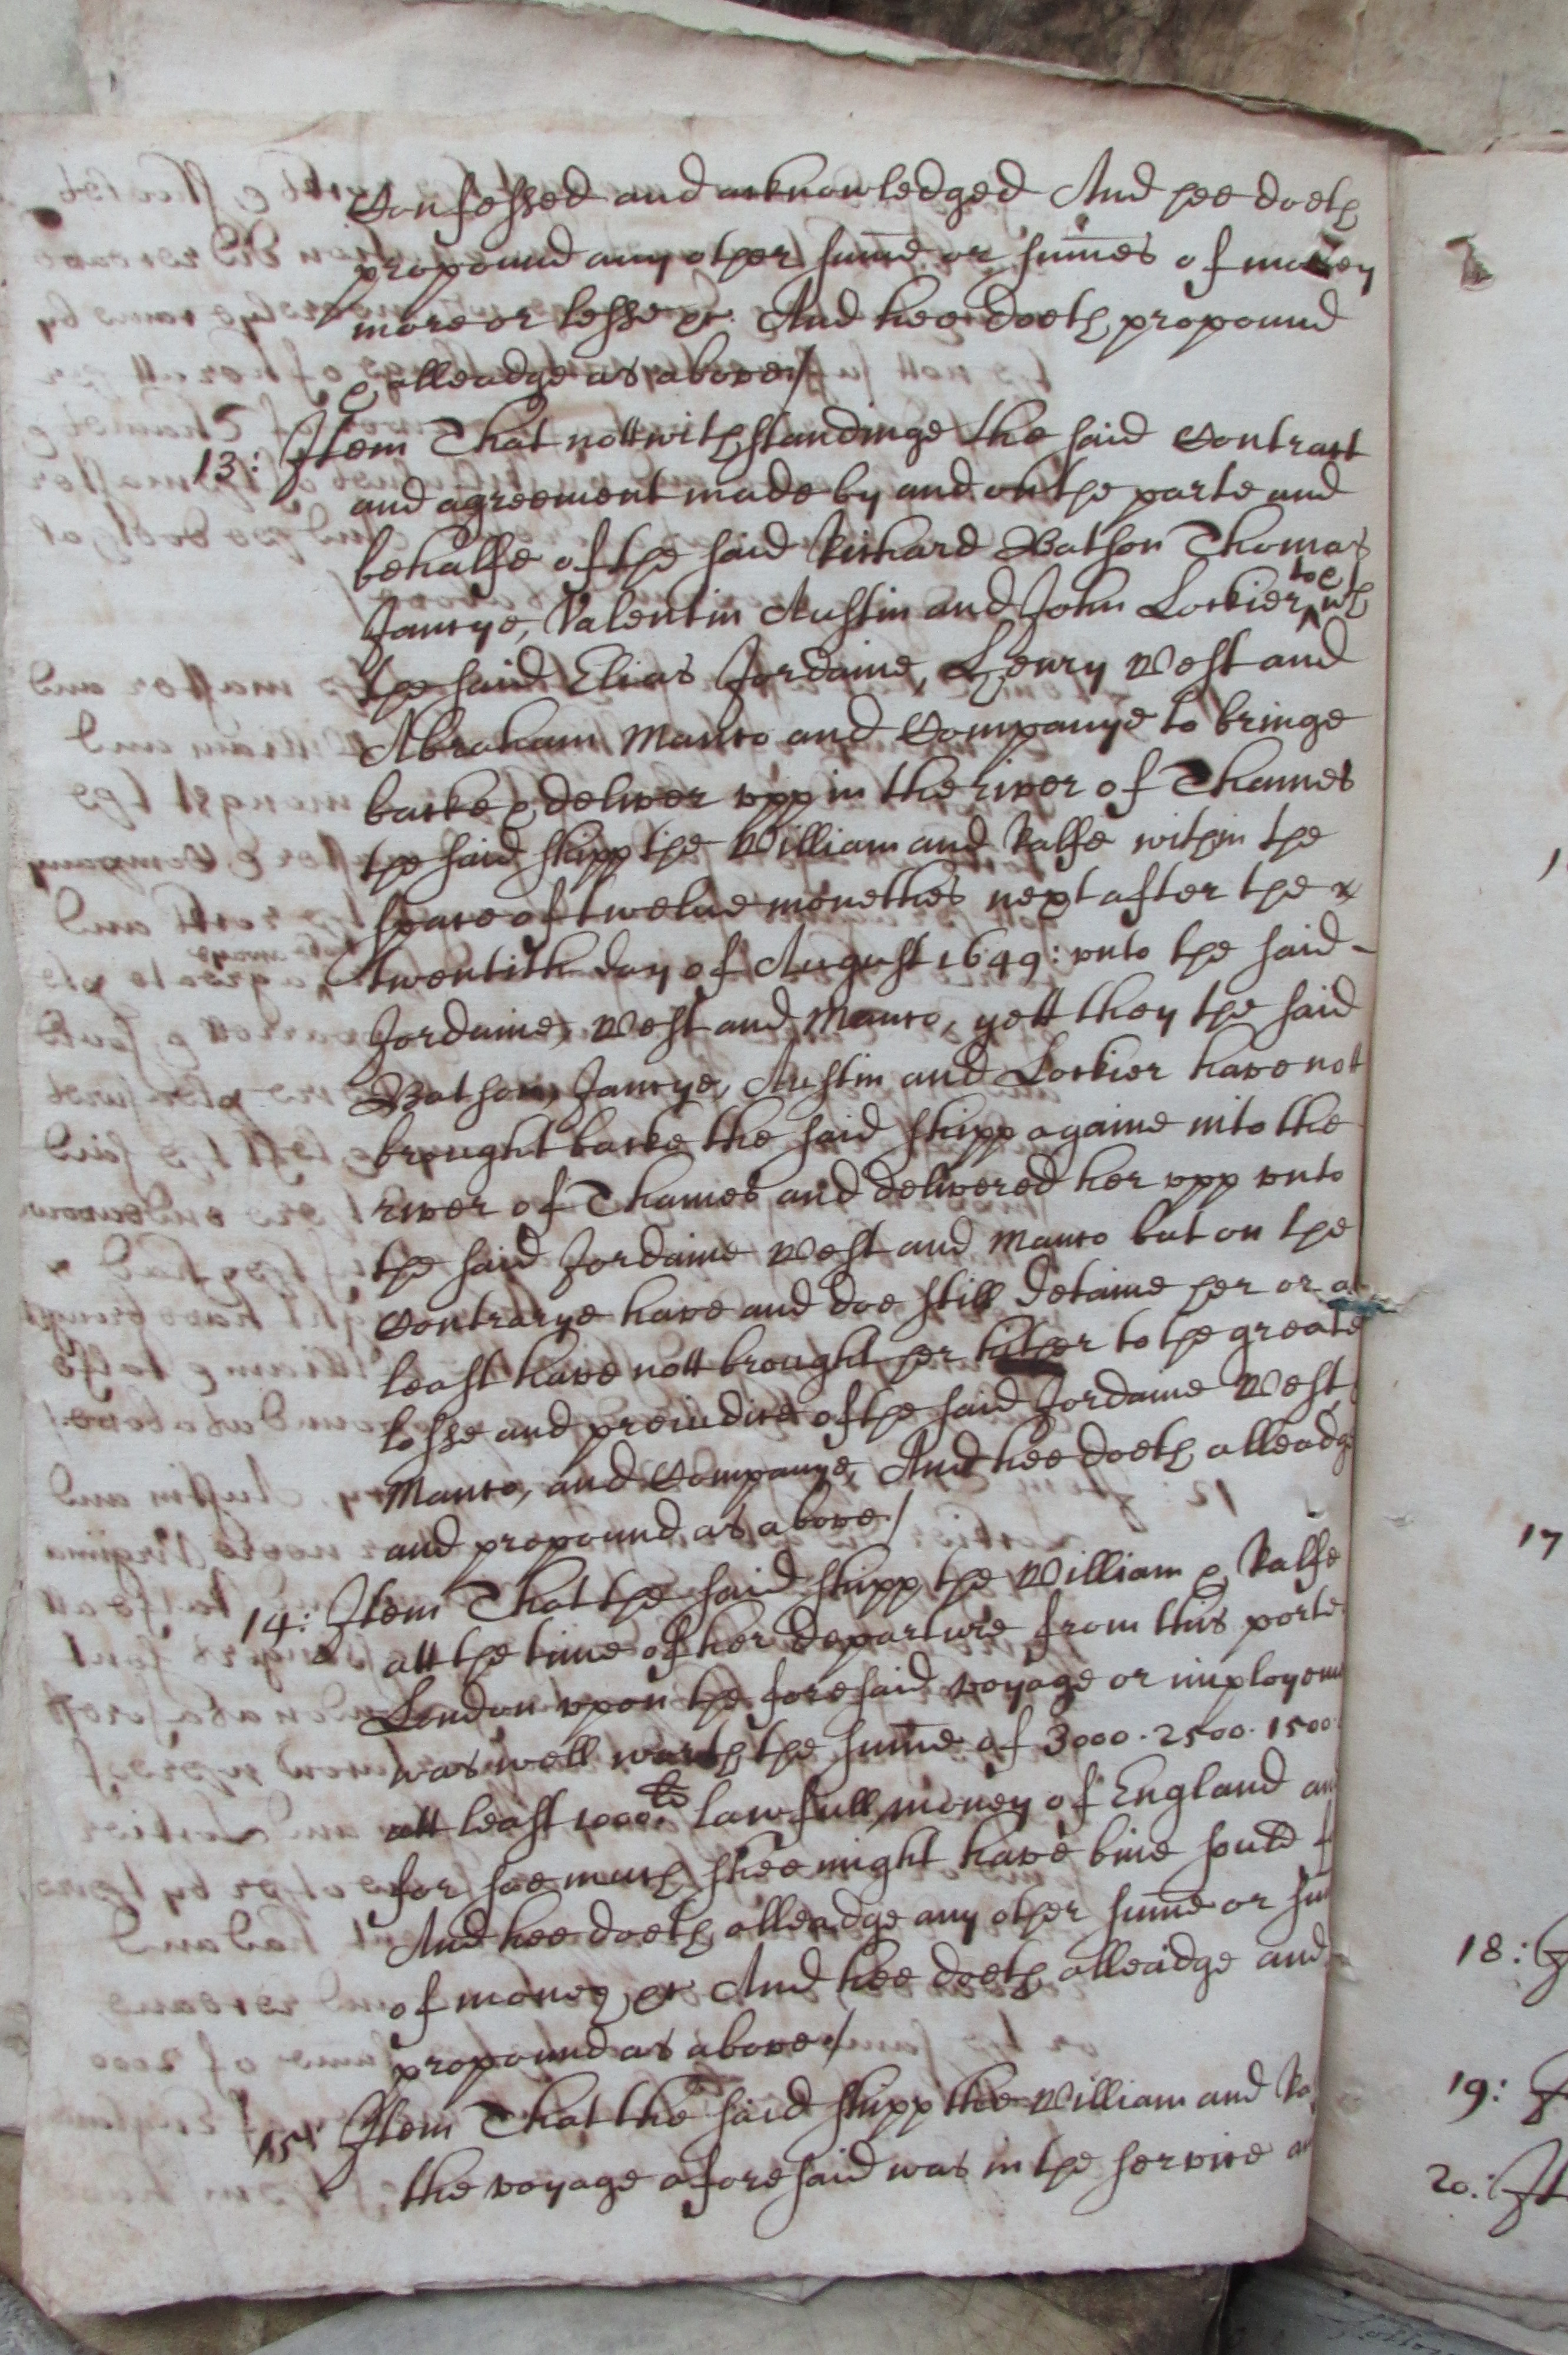 Confessed and acknowledged And hee doeth
propound any other summe or summes of money
more or lesse &c. And hee doeth propound
& alleadge as above /
13: Item That nottwithstandinge the said Contract
and agreement made by and on the parte and
behalfe of the said Richard Batson Thomas
Jancye, Valentin Austin and John Lockier, to & wth
the said Elias Jordaine, Henry West and
Abraham Manto and Companye to bringe
backe & deliver upp in the river of Thames
the said shipp the William and Ralfe within the
space of twelve monethes next after the
twentith day of August 1649: unto the said -
Jordaine, West and Manto, yett they the said
Batson, Jancye, Austin and Lockier have not
brought backe the said shipp againe into the
river of Thames and delivered her upp unto
the said Jordaine West and Manto but on the
Contrarye have and doe still detaine her or a
least have nott brought her hither to the greate
losse and preiudice of the said Jordaine West
Manto, and Companye, And hee doeth alleadge
and propound as above /
14: Item That the said shipp the William & Ralfe
att the time of her departure from this porte
London upon the foresaid voyage or imployem
was well worth the summe of 3000. 2500. 1500.
att least 1000 li lawfull money of England an
for soe much shee might have bine sould f
And hee doeth alleadge any other summe or sum
of money &c And hee doeth alleadge and
propound as above /
15: Item That the said shipp the William and Ra
the voyage aforesaid was in the service an
17
18:
19:
20: It